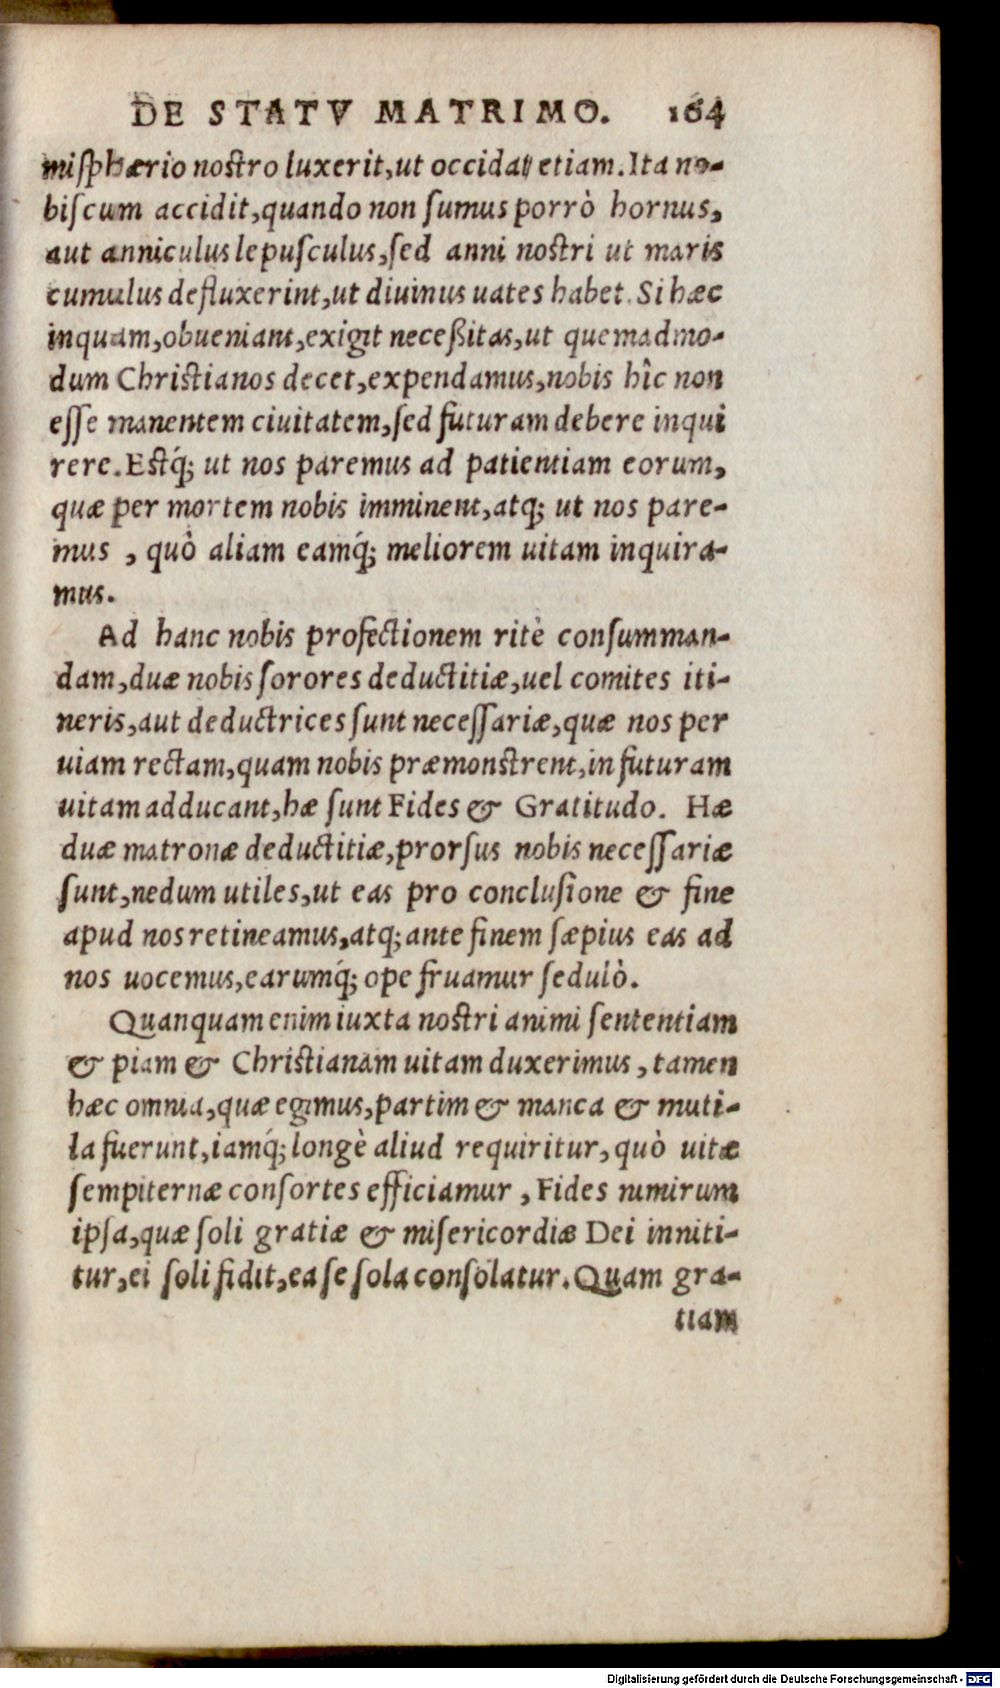 DE STATV MATRIMO. 164
misphærio nostro luxerit,ut occidat etiam.Ita no-
biscum accidit,quando non sumus porrò hornus,
aut anniculus lepusculus,sed anni nostri ut maris
cumulus defluxerint,ut diuinus uates habet. Si hæc
inquam,obueniant,exigit neceßitas,ut quemadmo-
dum Christianos decet,expendamus,nobis hîc non
esse manentem ciuitatem,sed futuram debere inqui
rere.Estq́; ut nos paremus ad patientiam eorum,
quæ per mortem nobis imminent,atq; ut nos pare-
mus , quò aliam eamq́; meliorem uitam inquira-
mus.
Ad hanc nobis profectionem ritè consumman-
dam,duæ nobis sorores deductitiæ,uel comites iti-
neris,aut deductrices sunt necessariæ,quæ nos per
uiam rectam,quam nobis præmonstrent,in futuram
uitam adducant,hæ sunt Fides & Gratitudo. Hæ
duæ matronæ deductitiæ,prorsus nobis necessariæ
sunt,nedum utiles,ut eas pro conclusione & fine
apud nos retineamus,atq; ante finem sæpius eas ad
nos uocemus,earumq́; ope fruamur sedulò.
Quanquam enim iuxta nostri animi sententiam
& piam & Christianam uitam duxerimus , tamen
hæc omnia,quæ egimus,partim & manca & muti-
la fuerunt,iamq́; longè aliud requiritur,quò uitæ
sempiternæ consortes efficiamur , Fides nimirum
ipsa,quæ soli gratiæ & misericordiæ Dei inniti-
tur,ei soli fidit,ea se sola consolatur.Quam gra-
tiam
Digitalisierung gefördert durch die Deutsche Forschungsgemeinschaft - DFG